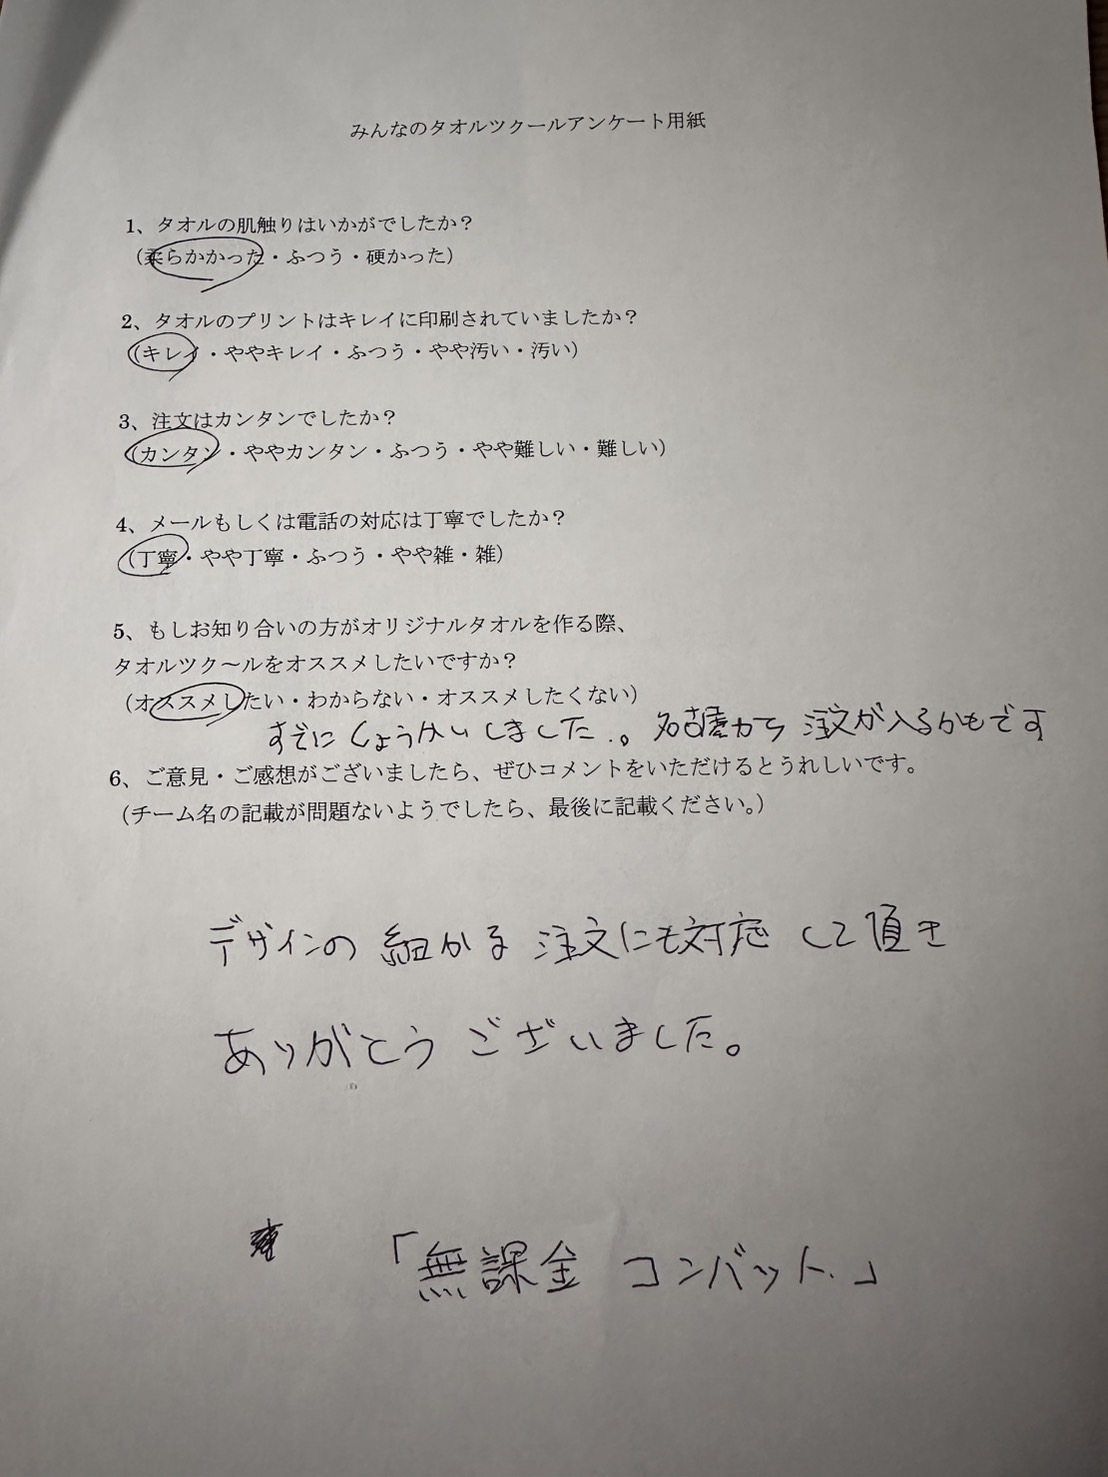 みんなのタオルツクールアンケート用紙
1、タオルの肌触りはいかがでしたか？
（柔らかかった・ふつう・硬かった）
2、タオルのプリントはキレイに印刷されていましたか？
（キレイ・ややキレイ・ふつう・やや汚い・汚い）
3、注文はカンタンでしたか？
（カンタン・ややカンタン・ふつう・やや難しい・難しい）
4、メールもしくは電話の対応は丁寧でしたか？
（丁寧・やや丁寧・ふつう・やや雑・雑）
5、もしお知り合いの方がオリジナルタオルを作る際、
タオルツク～ルをオススメしたいですか？
（オススメしたい・わからない・オススメしたくない）
すでにしょうかいしました。名古屋から注文が入るかもです
6、ご意見・ご感想がございましたら、ぜひコメントをいただけるとうれしいです。
（チーム名の記載が問題ないようでしたら、最後に記載ください。）
デザインの細かな注文にも対応して頂き
ありがとうございました。
「無課金コンバット」